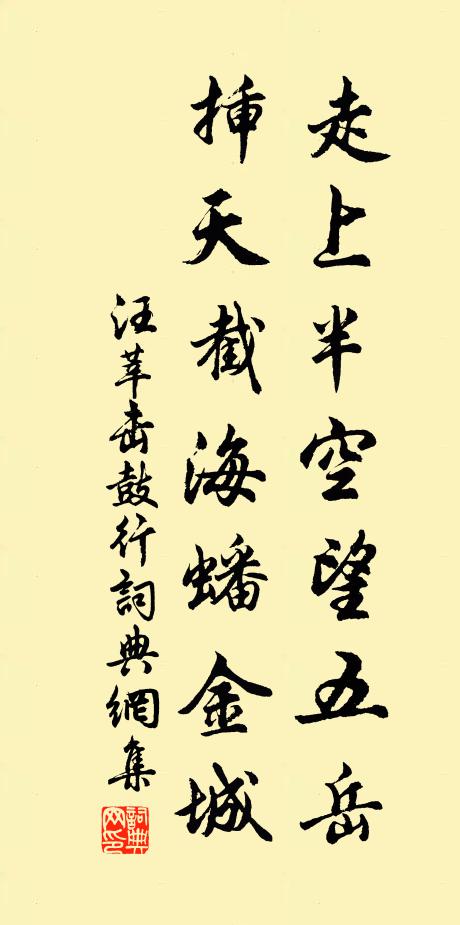 走上半空望五岳
挿天截海蟠金城
汪莘击鼓行詞典網集
詞典網印